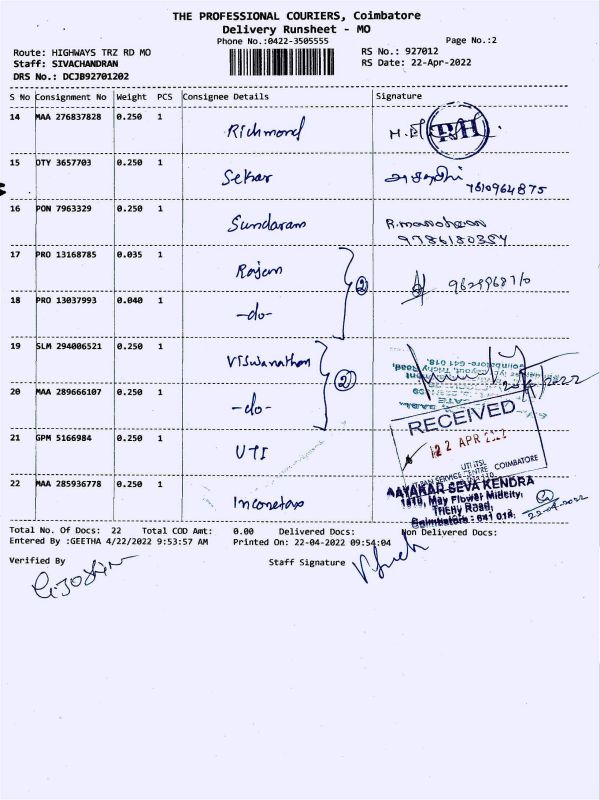 THE PROFESSIONAL COURIERS, Coimbatore
Delivery Runsheet - MO
Phone No.:0422-3505555
Page No.:2
Route: HIGHWAYS TRZ RD MO
RS No.: 927012
Staff: SIVACHANDRAN
RS Date: 22-Apr-2022
DRS No.: DCJB92701202
S No Consignment No Weight PCS Consignee Details Signature
14 MAA 276837828 0.250 1 Richmond
RH
15 DTY 3657703 0.250 1 Sekar
7610964875
16 PON 7963329 0.250 1 Sundaram R.manoharan
9786180354
17 PRO 13168785 0.035 1 Rajem
②
18 PRO 13037993 0.040 1 -do-
19 SLM 294006521 0.250 1 Viswanathan
②
20 MAA 289666107 0.250 1 -do-
RECEIVED
22 APR 2022
21 GPM 5166984 0.250 1 UTI
UTIITSL
PAN SERVICE CENTRE COIMBATORE
22 MAA 285936778 0.250 1 Incometax
AAYAKAR SEVA KENDRA
1510, May Flower Midcity,
Trichy Road,
Coimbatore - 641 018.
22-04-2022
Total No. Of Docs: 22 Total COD Amt: 0.00 Delivered Docs: Non Delivered Docs:
Entered By :GEETHA 4/22/2022 9:53:57 AM Printed On: 22-04-2022 09:54:04
Verified By Staff Signature